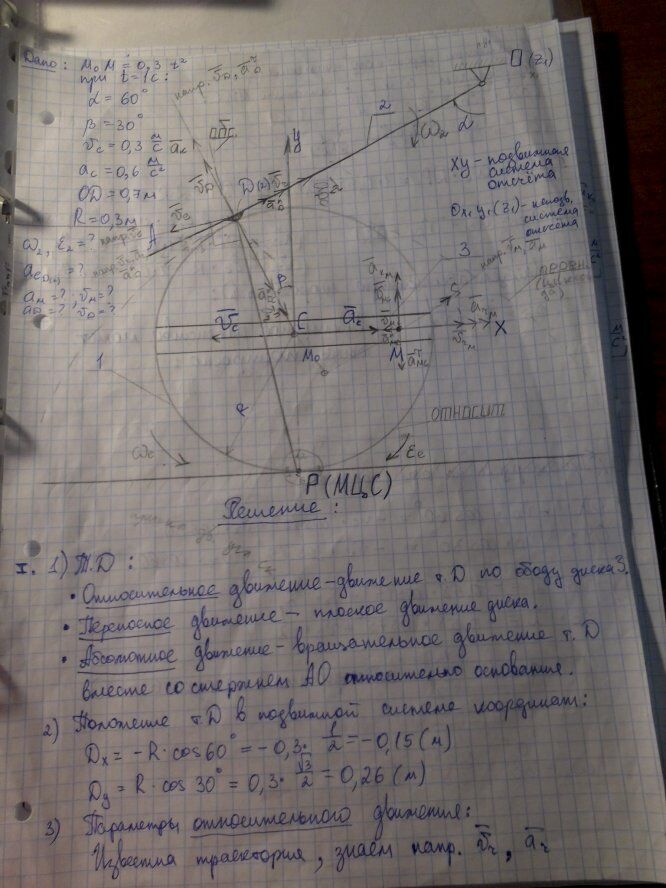 Дано: M₀M = 0,3 t²
при t = 1c:
α = 60°
β = 30°
v̄c = 0,3 м/с
ac = 0,6 м/с²
OD = 0,7 м
R = 0,3 м
ω₂, ε₂ = ?
aM = ? ; v̄M = ?
aD = ? v̄D = ?
O (Z₁)
2
ω₂
α
y
D
A
xy - подвижная
система
отсчёта
Ox₁y₁(z₁) - неподв.
система
отсчёта
3
v̄c
C
āc
M₀
M
X
1
ωc
εc
относит
P (МЦС)
Решение:
I. 1) Т.D:
• Относительное движение - движение т.D по ободу диска 3.
• Переносное движение - плоское движение диска.
• Абсолютное движение - вращательное движение т. D
вместе со стержнем АО относительно основания.
2) Положение т.D в подвижной системе координат:
Dx = -R·cos60° = -0,3·1/2 = -0,15 (м)
Dy = R·cos 30° = 0,3·√3/2 = 0,26 (м)
3) Параметры относительного движения:
Известна траектория, знаем напр. v̄r, ār